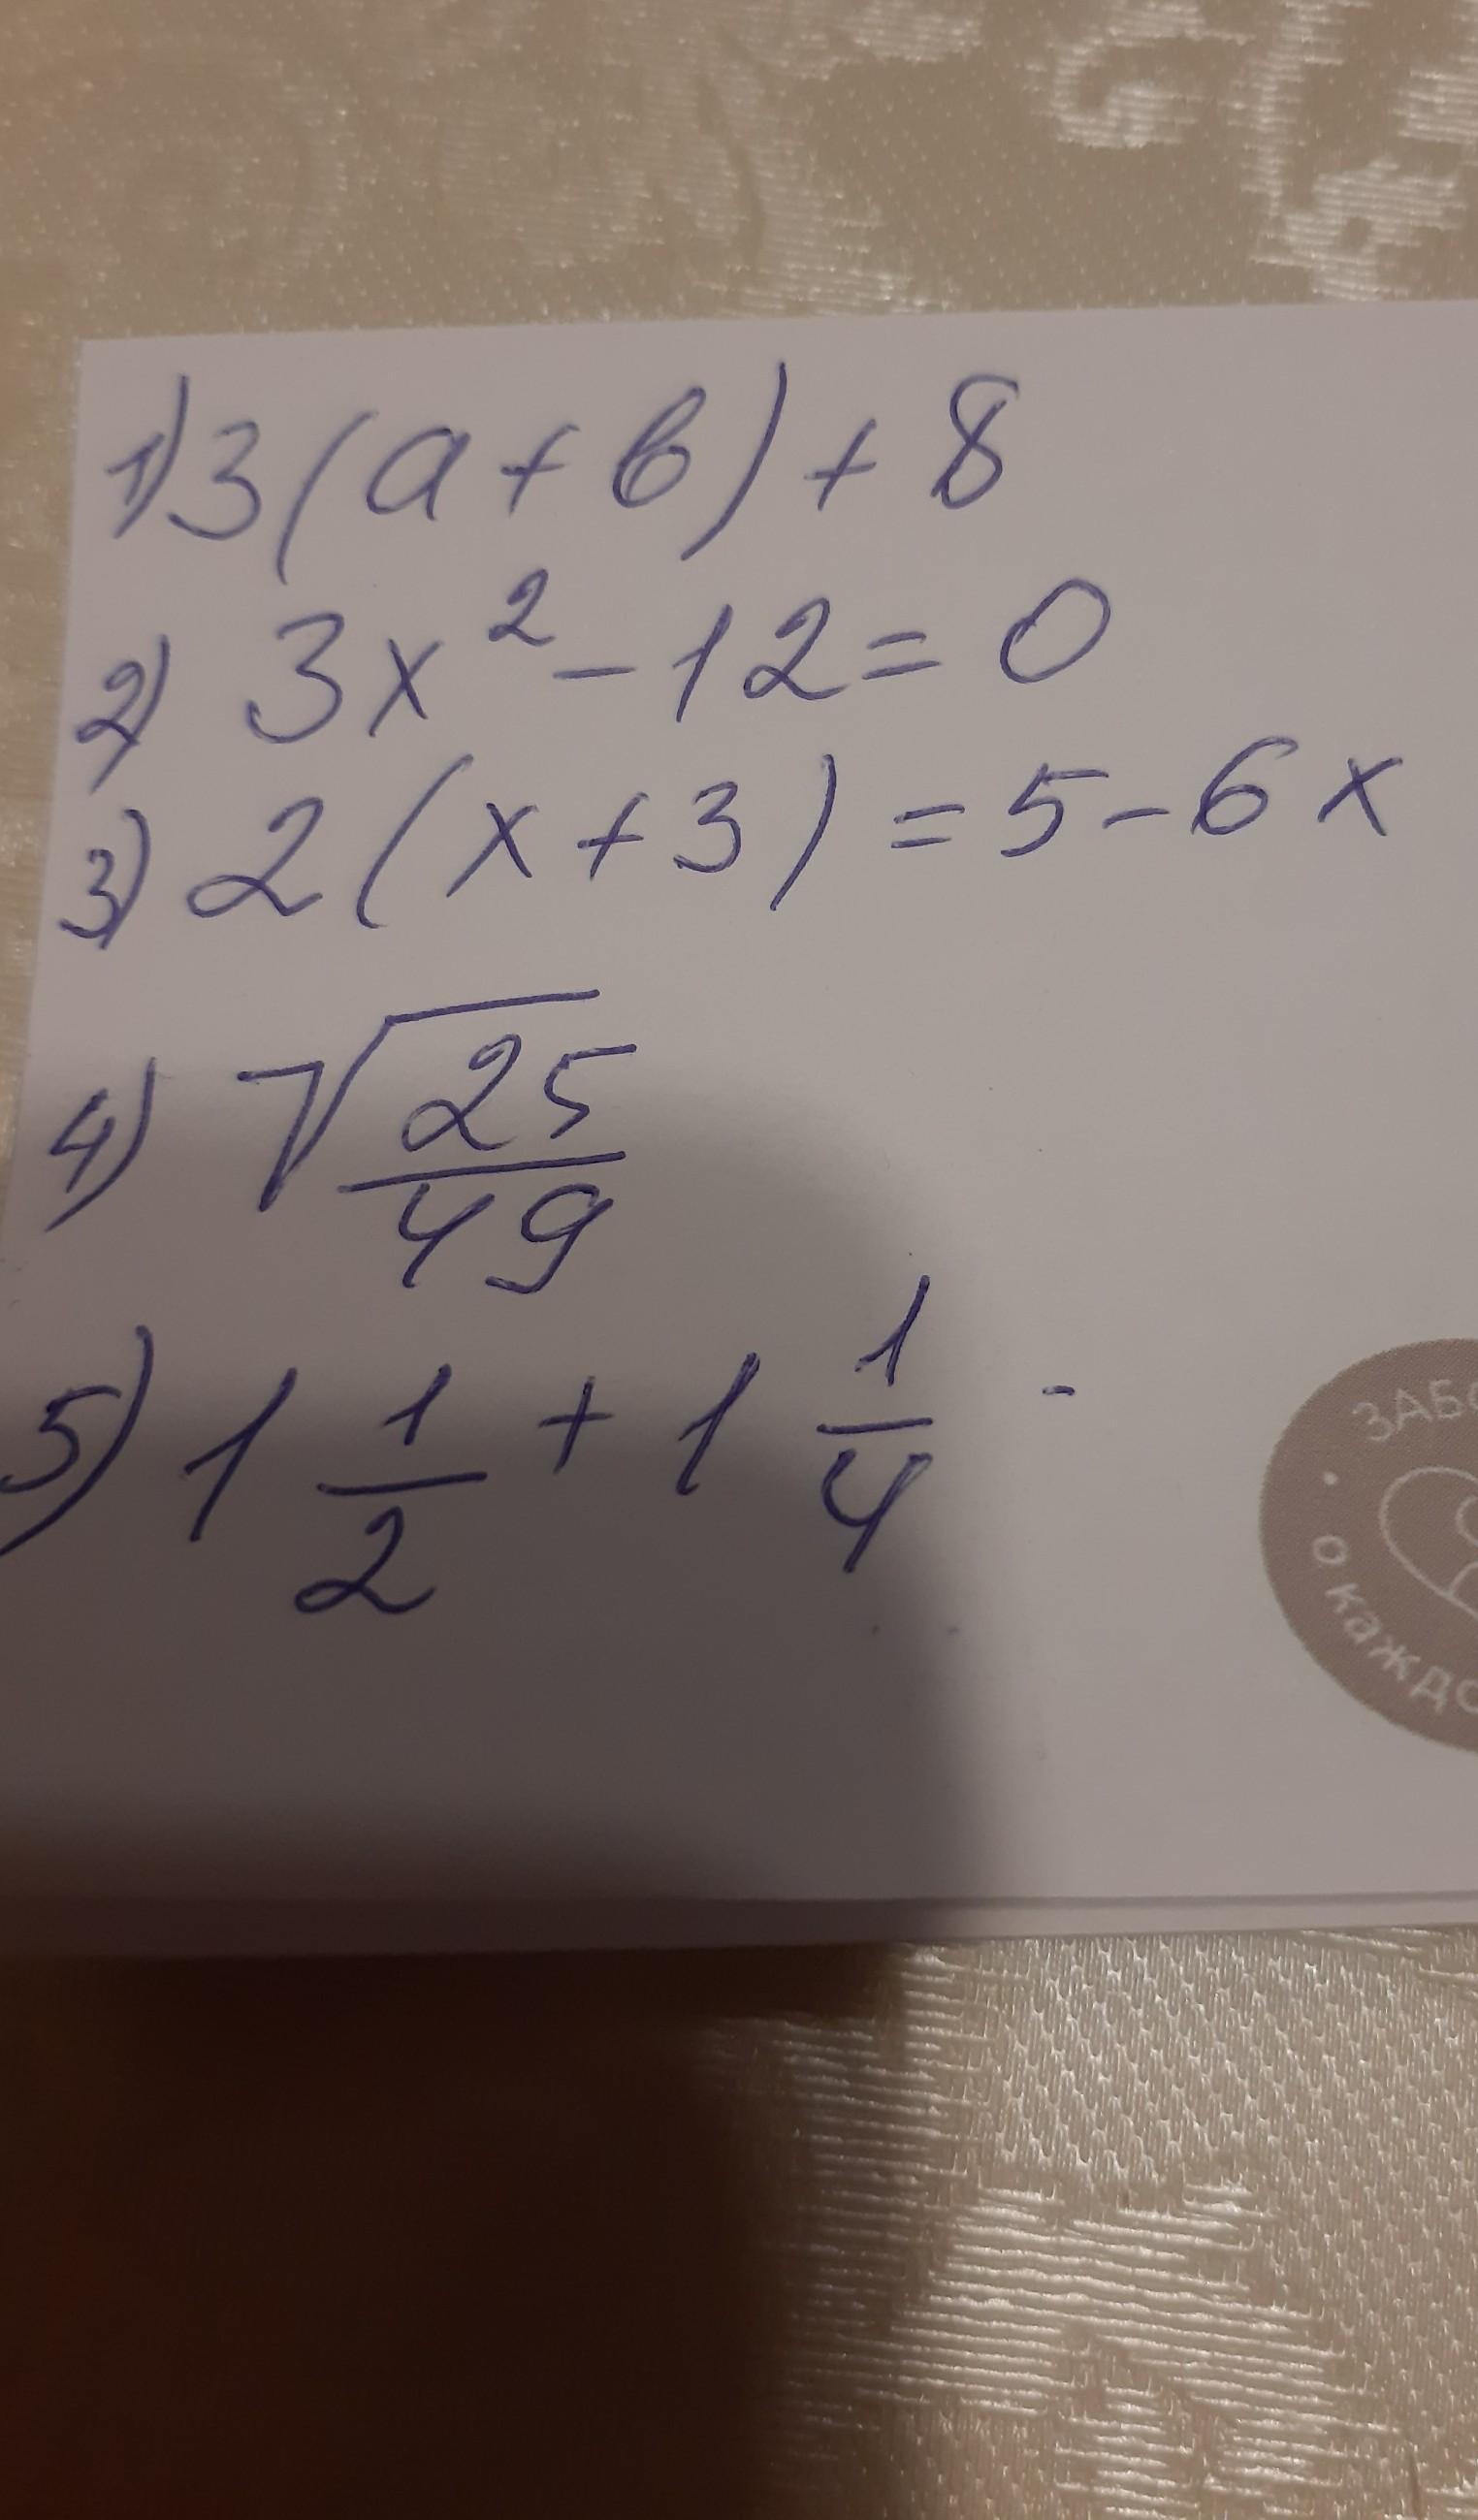 1) 3(a+b)+8
2) 3x²-12=0
3) 2(x+3)=5-6x
4) √(25/49)
5) 1 1/2 + 1 1/4 -
о каждо